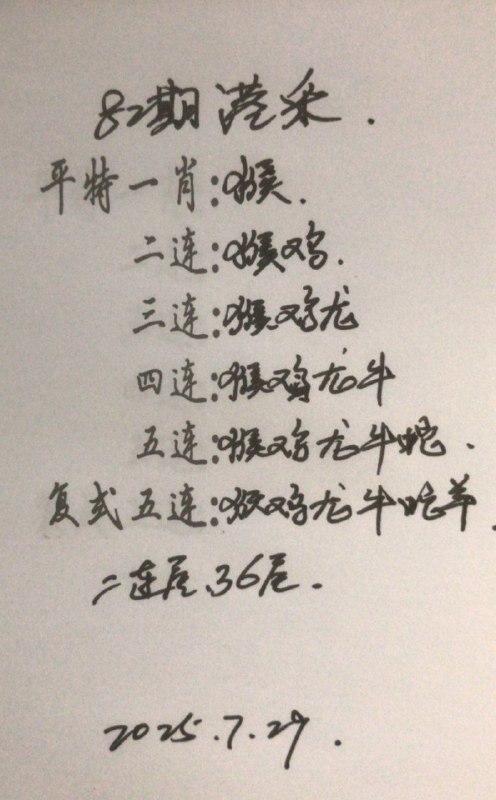 82期港采.
平特一肖:猴.
二连:猴鸡.
三连:猴鸡龙
四连:猴鸡龙牛
五连:猴鸡龙牛蛇.
复式五连:猴鸡龙牛蛇羊.
二连尾.36尾.
2025.7.29.